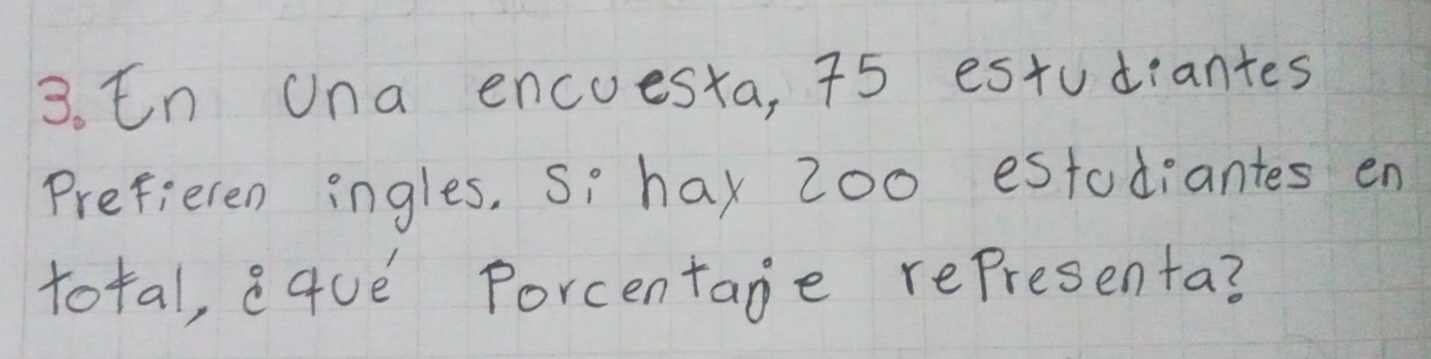 3. En una encuesta, 75 estudiantes
Prefieren ingles. Si hay 200 estudiantes en
total, ¿qué Porcentaje representa?